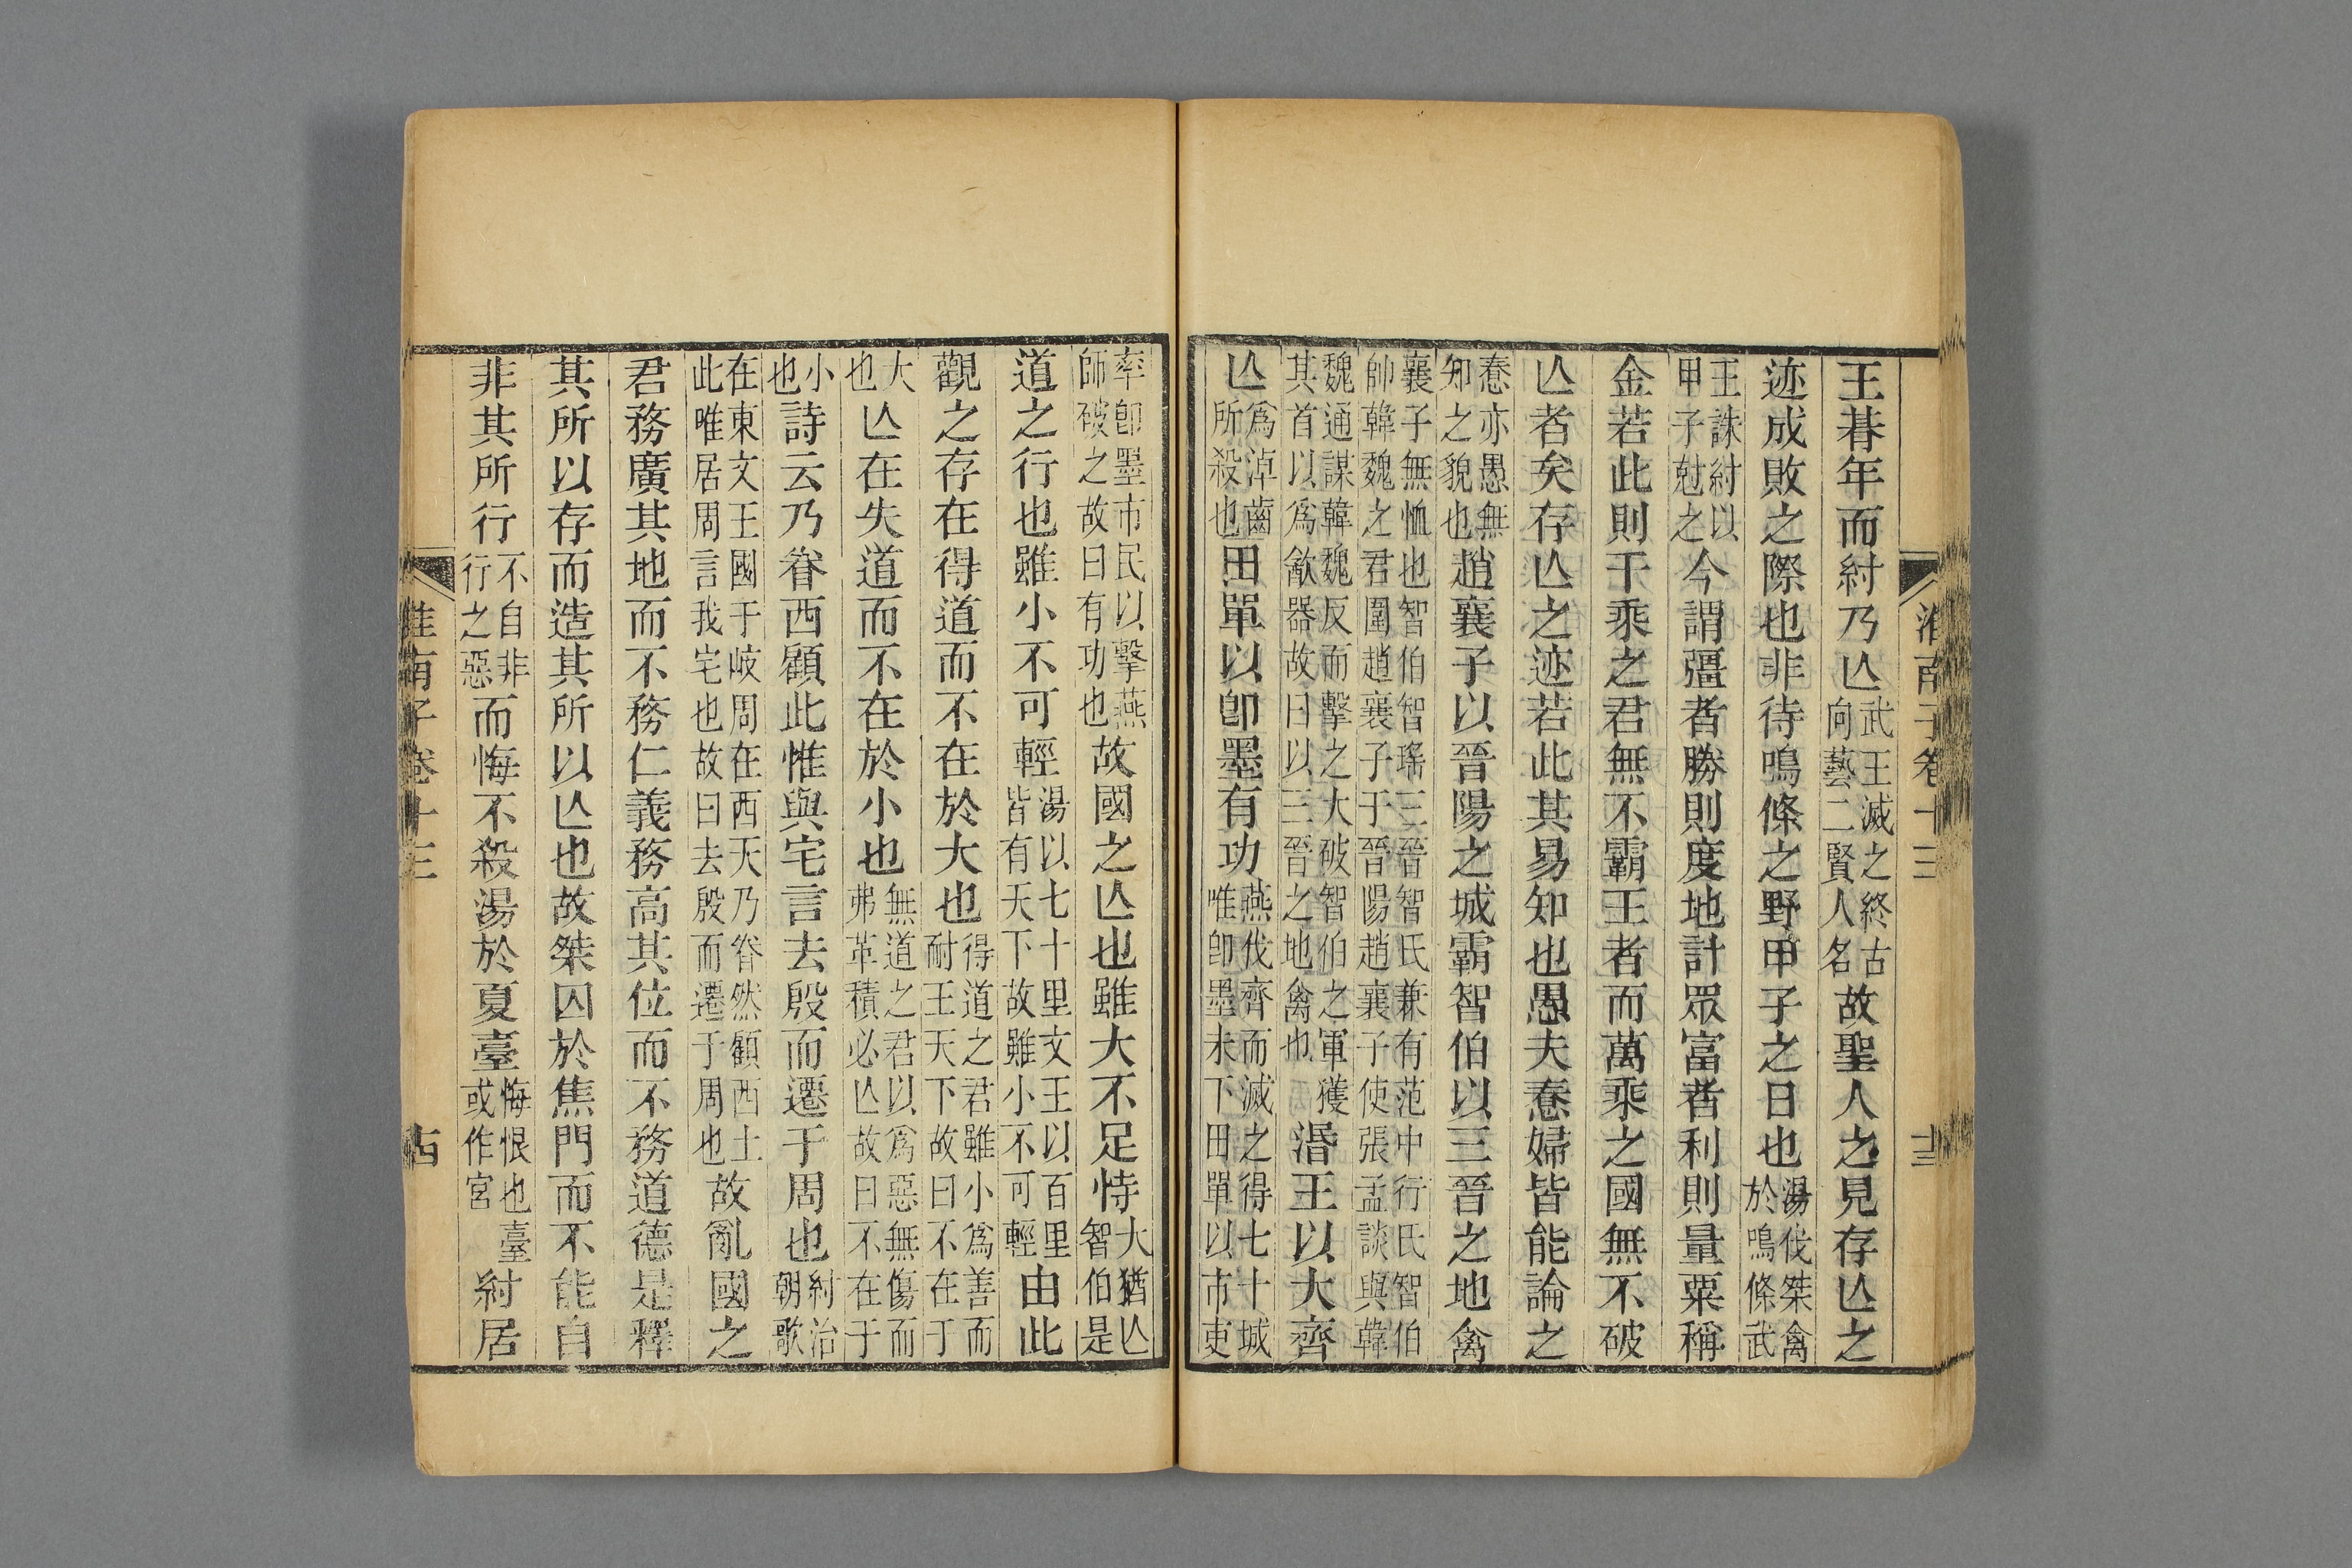 淮南子卷十三
十三
王朞年而紂乃亾武王滅之終古向藝二賢人名故聖人之見存亾之
迹成敗之際也非待鳴條之野甲子之日也湯伐桀禽於鳴條武
王誅紂以甲子尅之今謂彊者勝則度地計眾富者利則量粟稱
金若此則千乘之君無不霸王者而萬乘之國無不破
亾者矣存亾之迹若此其易知也愚夫惷婦皆能論之
惷亦愚無知之貌也趙襄子以晉陽之城霸智伯以三晉之地禽
襄子無恤也智伯智瑤三晉智氏兼有范中行氏智伯帥韓魏之君圍趙襄子于晉陽趙襄子使張孟談與韓
魏通謀韓魏反而擊之大破智伯之軍獲其首以爲飮器故曰以三晉之地禽也湣王以大齊
亾爲淖齒所殺也田單以卽墨有功燕伐齊而滅之得七十城唯卽墨未下田單以市吏
率卽墨市民以擊燕師破之故曰有功也故國之亾也雖大不足恃大猶亾智伯是
道之行也雖小不可輕湯以七十里文王以百里皆有天下故雖小不可輕由此
觀之存在得道而不在於大也得道之君雖小爲善而耐王天下故曰不在于
大也亾在失道而不在於小也無道之君以爲惡無傷而弗革積必亾故曰不在于
小也詩云乃眷西顧此惟與宅言去殷而遷于周也紂治朝歌
在東文王國于岐周在西天乃眷然顧西土此唯居周言我宅也故曰去殷而遷于周也故亂國之
君務廣其地而不務仁義務高其位而不務道德是釋
其所以存而造其所以亾也故桀囚於焦門而不能自
非其所行不自非行之惡而悔不殺湯於夏臺悔恨也臺或作宮紂居
淮南子卷十三
十四